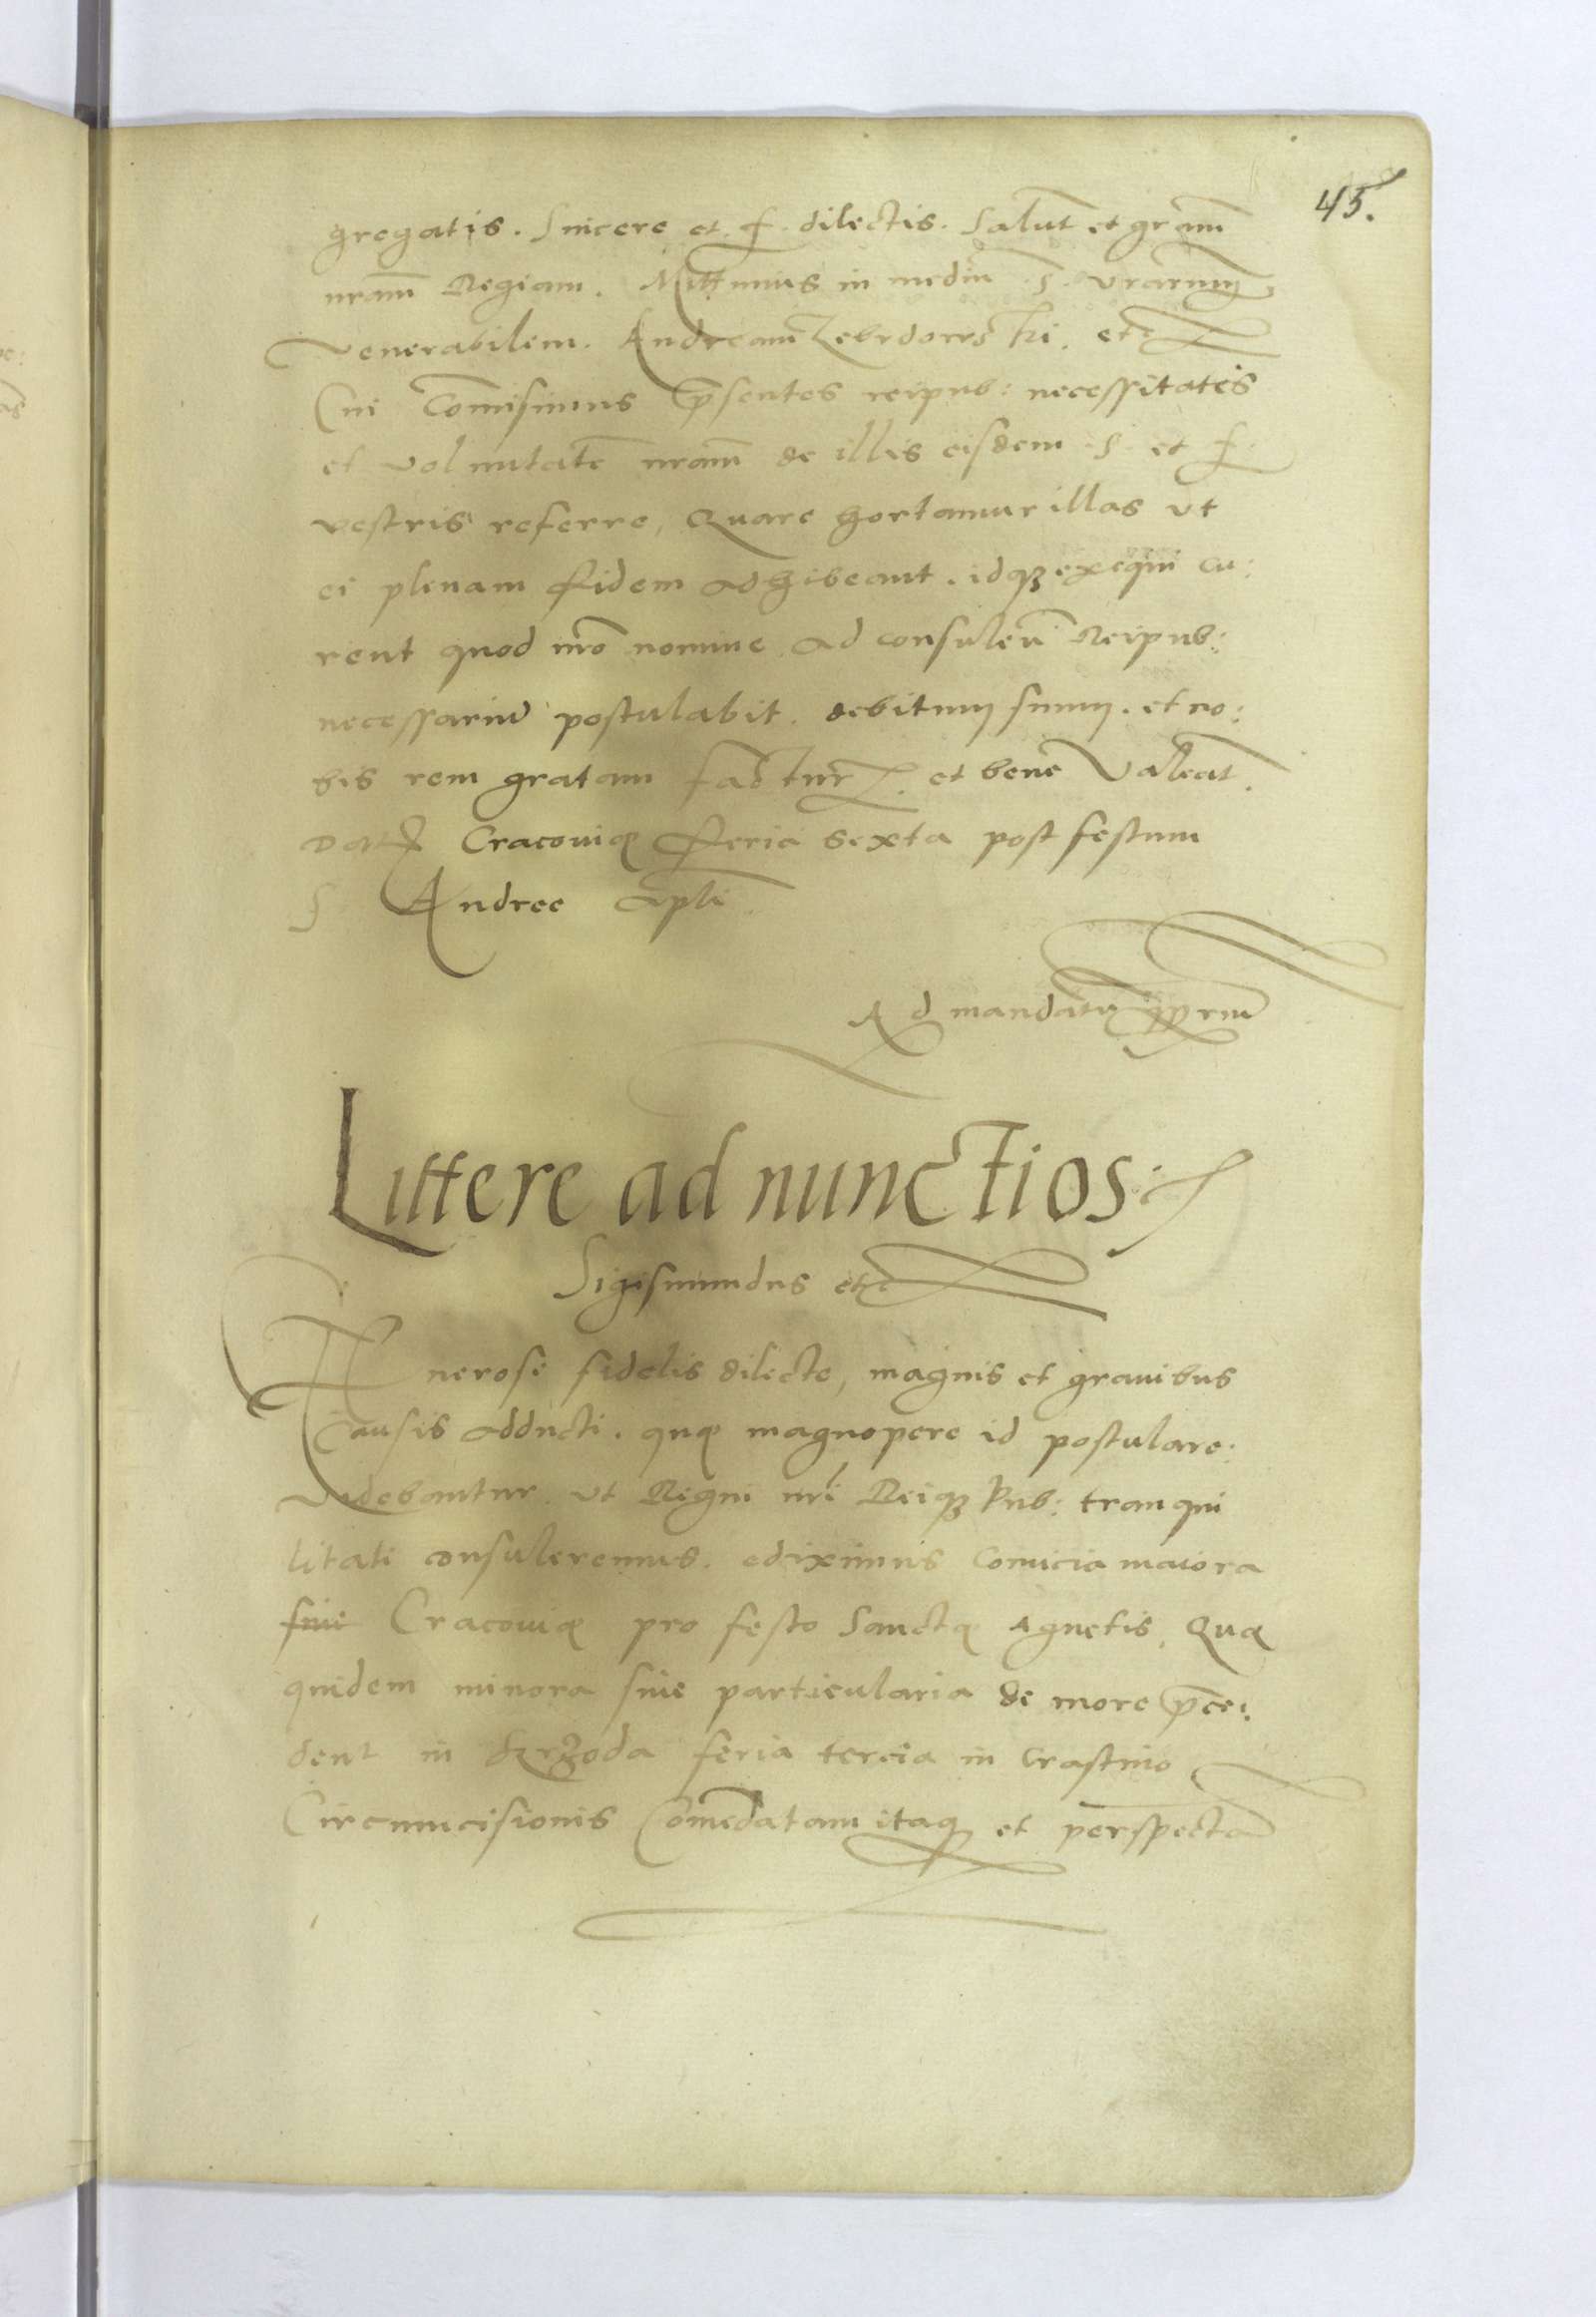 45.
gregatis. Sincere et. f. dilectis. Salut̄ et gram̄
nram̄ Regiam. Mittimus in mediū S. vrarum
venerabilem. Andream Zebrdowski. etc
Cui Com̄isimus p̄sentes reipub: necessitates
et volūtatē nram̄ de illis eisdem S. et f.
vestris referre, Quare hortamur illas ut
ei plenam fidem adhibeant. idq3 exequi cu:
rent quod nr̄o nomine ad consulen̄ Reipub:
necessariū postulabit. debitum suum. et no:
bis rem gratam factur. et bene Valeat.
Dat Cracouię Feria Sexta post festum
S Andree Apli
Ad mandatū ppriū
Littere ad nunctios:
Sigismundus etc
Generose fidelis dilecte, magnis et grauibus
Causis adducti. quę magnopere id postulare:
videbantur ut Regni nrī Reiq3 Pub: tranqui
litati consuleremus. ediximus Comicia maiora
siue Cracouię pro festo Sanctę Agnetis, Quę
quidem minora siue particularia de more p̄ce:
dent in Srzoda feria tercia in Crastino
Circumcisionis Com̄edatam itaq3 et perspectā